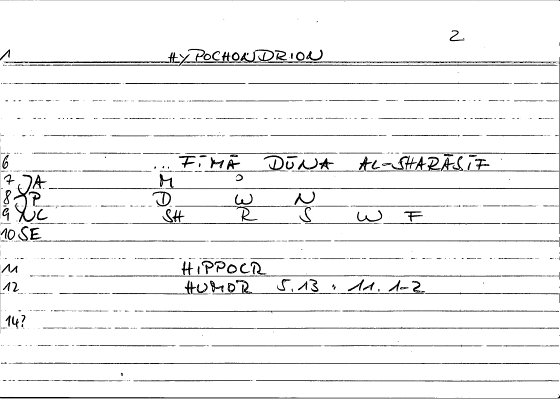 2
1 HYPOCHONDRION
6 ... FĪMĀ DŪNA AL-SHARĀSĪF
7 JA M
8 JP D W N
9 NC SH R S W F
10 SE
11 HIPPOCR
12 HUMOR 5.13 11.1-2
14?